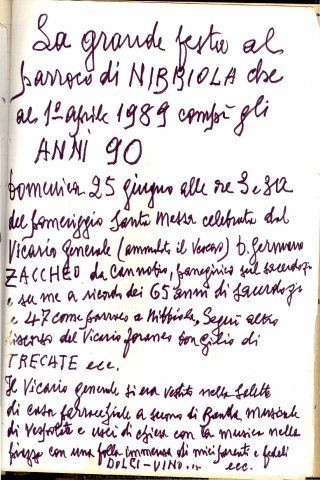 La grande festa al
parroco di NIBBIOLA che
al 1º aprile 1989 compì gli
ANNI 90
Domenica 25 giugno alle ore 3 e 30
del pomeriggio Santa Messa celebrata dal
Vicario Generale (ammalato il Vescovo) D. Germano
ZACCHEO da Cannobio, panegirico sul sacerdozio
e su me a ricordo dei 65 anni di sacerdozio
e 47 come parroco a Nibbiola, Seguì altro
discorso del Vicario foraneo Don Gilio di
TRECATE ecc.
Il Vicario generale si era vestito nella saletta
di casa parrocchiale a suono di Banda musicale
di Vespolate e uscì di chiesa con la musica nella
piazza con una folla immensa di amici parenti e fedeli
DOLCI-VINO... ecc.